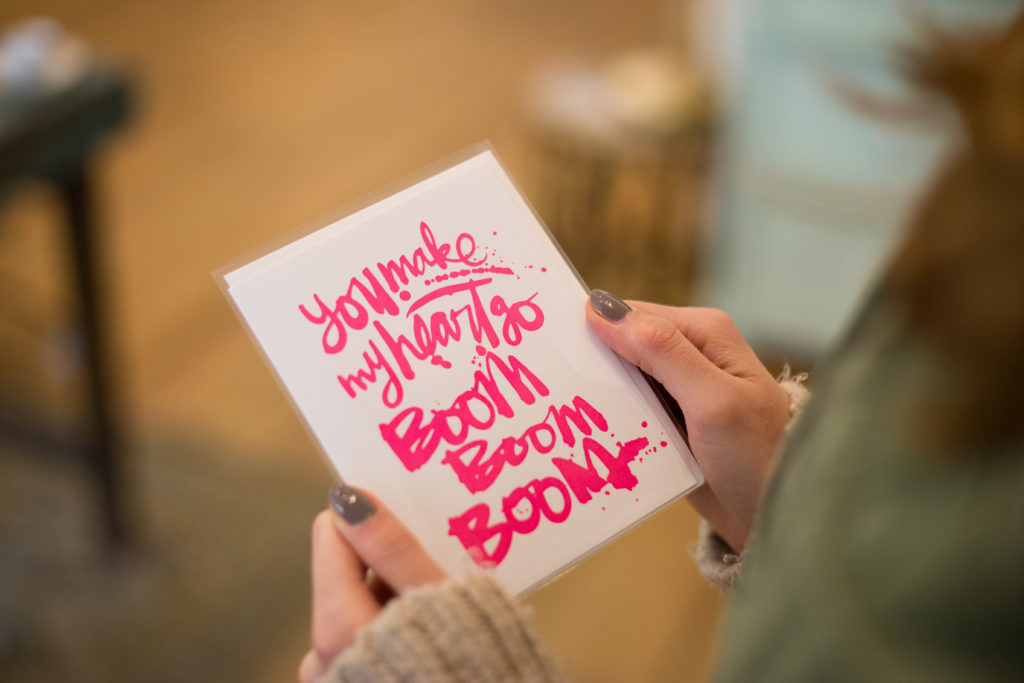 You make
my heart go
BOOM
BOOM
BOOM